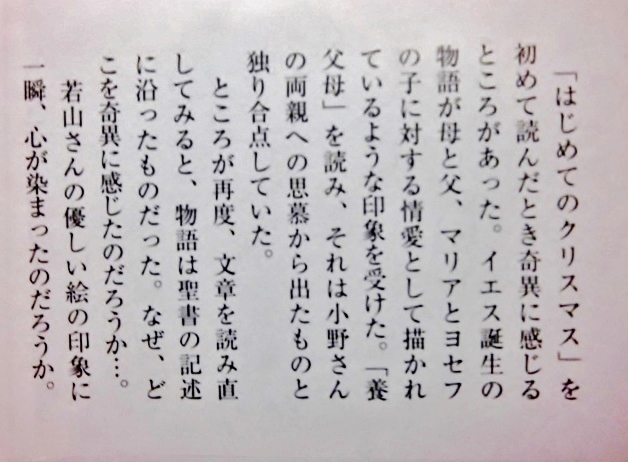 「はじめてのクリスマス」を
初めて読んだとき奇異に感じる
ところがあった。イエス誕生の
物語が母と父、マリアとヨセフ
の子に対する情愛として描かれ
ているような印象を受けた。「養
父母」を読み、それは小野さん
の両親への思慕から出たものと
独り合点していた。
ところが再度、文章を読み直
してみると、物語は聖書の記述
に沿ったものだった。なぜ、ど
こを奇異に感じたのだろうか…。
若山さんの優しい絵の印象に
一瞬、心が染まったのだろうか。